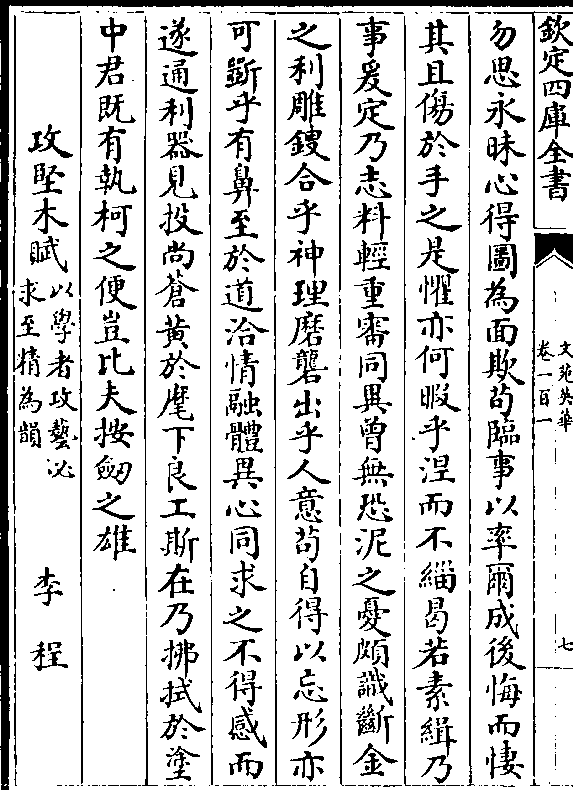 欽定四庫全書
文苑英華
卷一百一
七
勿思永昧心得圖為面欺茍臨事以率爾成後悔而悽
其且傷於手之是懼亦何暇乎涅而不緇曷若素緝乃
事爰定乃志料輕重審同異曾無恐泥之憂頗識斷金
之利雕鎪合乎神理磨礱出乎人意苟自得以忘形亦
可斷乎有鼻至於道洽情融體異心同求之不得感而
遂通利器見投尚蒼黃於麾下良工斯在乃拂拭於塗
中君既有執柯之便豈比夫按劒之雄
攻堅木賦以學者攻藝必
求至精為韻
李程